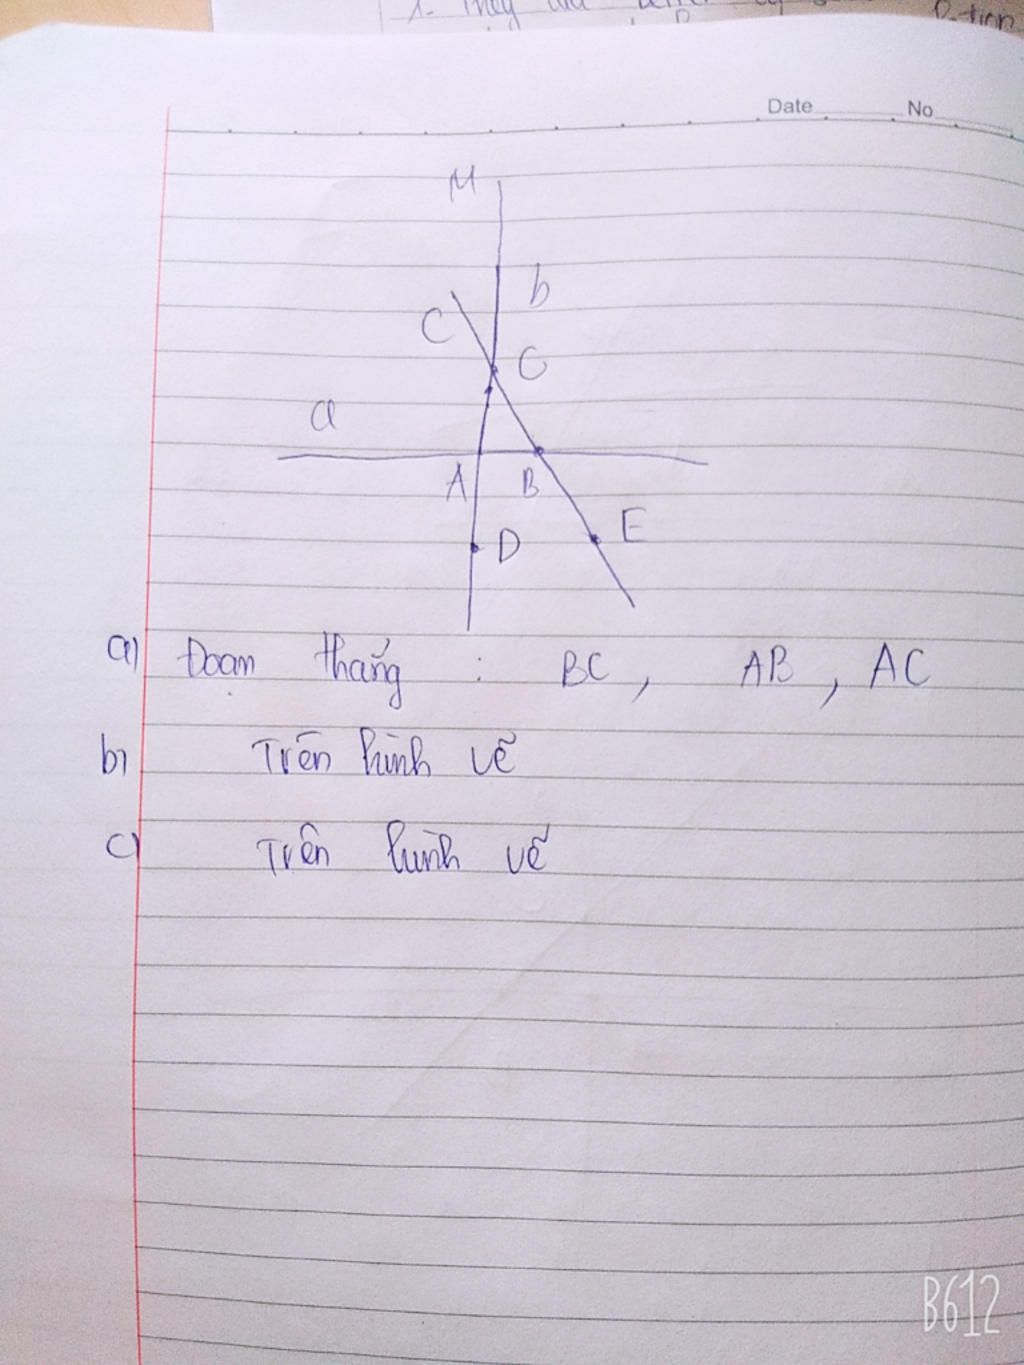 Date No
M
b
C
C
a
A B
D E
a) Đoạn thẳng : BC, AB, AC
b) Trên hình vẽ
c) Trên hình vẽ
B612